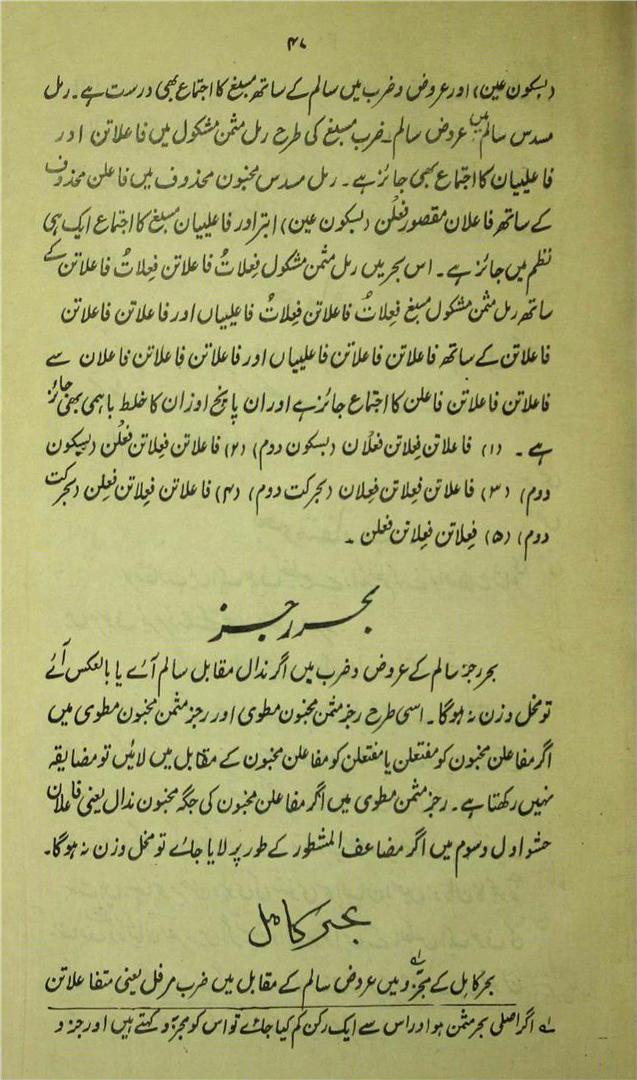 ۴۷
(بسکون عین) اور عروض و ضرب میں سالم کے ساتھ مسبغ کا اجتماع بھی درست ہے۔ رمل
مسدس سالم میں عروض سالم۔ ضرب مسبغ کی طرح رمل مثمن مشکول میں فاعلاتن اور
فاعلییان کا اجتماع بھی جائز ہے۔ رمل مسدس مخبون محذوف میں فاعلن محذوف
کے ساتھ فاعلان مقصور فعلُن (بسکون عین) ابتر اور فاعلییان مسبغ کا اجتماع ایک ہی
نظم میں جائز ہے۔ اس بحر میں رمل مثمن مشکول فِعلاتُ فاعلاتن فِعلاتُ فاعلاتن کے
ساتھ رمل مثمن مشکول مسبغ فِعلاتُ فاعلاتن فِعلاتُ فاعلییاں اور فاعلاتن فاعلاتن
فاعلاتن کے ساتھ فاعلاتن فاعلاتن فاعلییاں اور فاعلاتن فاعلاتن فاعلان سے
فاعلاتن فاعلاتن فاعلن کا اجتماع جائز ہے اور ان پانچ اوزان کا خلط باہمی بھی جائز
ہے۔ (۱) فاعلاتن فِعلاتن فعلان (بسکون دوم) (۲) فاعلاتن فِعلاتن فعلُن (بسیکون
دوم) (۳) فاعلاتن فِعلاتن فِعلان (بحرکت دوم) (۴) فاعلاتن فِعلاتن فِعلن (بحرکت
دوم) (۵) فِعلاتن فِعلاتن فعلن ۔
بحر رجز
بحر رجز سالم کے عروض و ضرب میں اگر مذال مقابل سالم آئے یا بالعکس آئے
تو مخل وزن نہ ہوگا۔ اسی طرح رجز مثمن مخبون مطوی اور رجز مثمن مخبون مطوی میں
اگر مفاعلن مخبون کو مفتعلن یا مفتعلن کو مفاعلن مخبون کے مقابل میں لائیں تو مضایقہ
نہیں رکھتا ہے۔ رجز مثمن مطوی میں اگر مفاعلن مخبون کی جگہ مخبون مذال یعنی فاعلان
حشو اول و سوم میں اگر مضاعف المشطور کے طور پر لایا جائے تو مخل وزن نہ ہوگا۔
بحر کامل
بحر کامل کے مجزو لہ میں عروض سالم کے مقابل میں ضرب مرفل یعنی متفاعلاتن
لہ اگر اصلی بحر مثمن ہو اور اس سے ایک رکن کم کیا جائے تو اس کو مجزو کہتے ہیں اور جزو